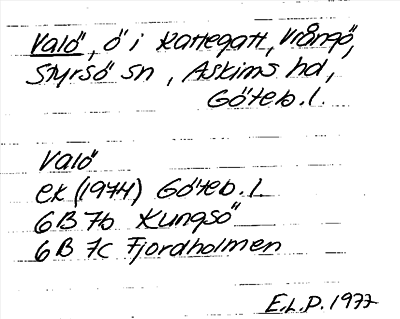 Valö, ö i Kattegatt, Vrångö,
Styrsö sn, Askims hd,
Göteb. l.
Valö
ek (1974) Göteb. l.
6B 7b Kungsö
6B 7c Fjordholmen
E.L.P. 1977